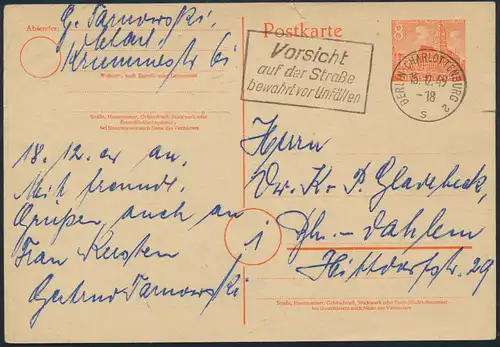 Absender:
G. Tarnowski,
Krummestr 6i
Wohnort, auch Zustell- oder Leitpostamt
Straße, Hausnummer, Gebäudeteil, Stockwerk oder
Postschließfachnummer;
bei Untermietern auch Name des Vermieters
18.12. an.
Mit freundl.
Grüßen, auch an
Frau Kersten
Gertrud Tarnowski
Postkarte
Vorsicht
auf der Straße
bewahrt vor Unfällen
8
BERLIN-CHARLOTTENBURG 2
15.12.49
-18
s
Herrn
Dr. K. P. Gladebeck,
Bln-Dahlem
Hittorfstr. 29
Straße, Hausnummer, Gebäudeteil, Stockwerk oder Postschließfachnummer;
bei Untermietern auch Name des Vermieters